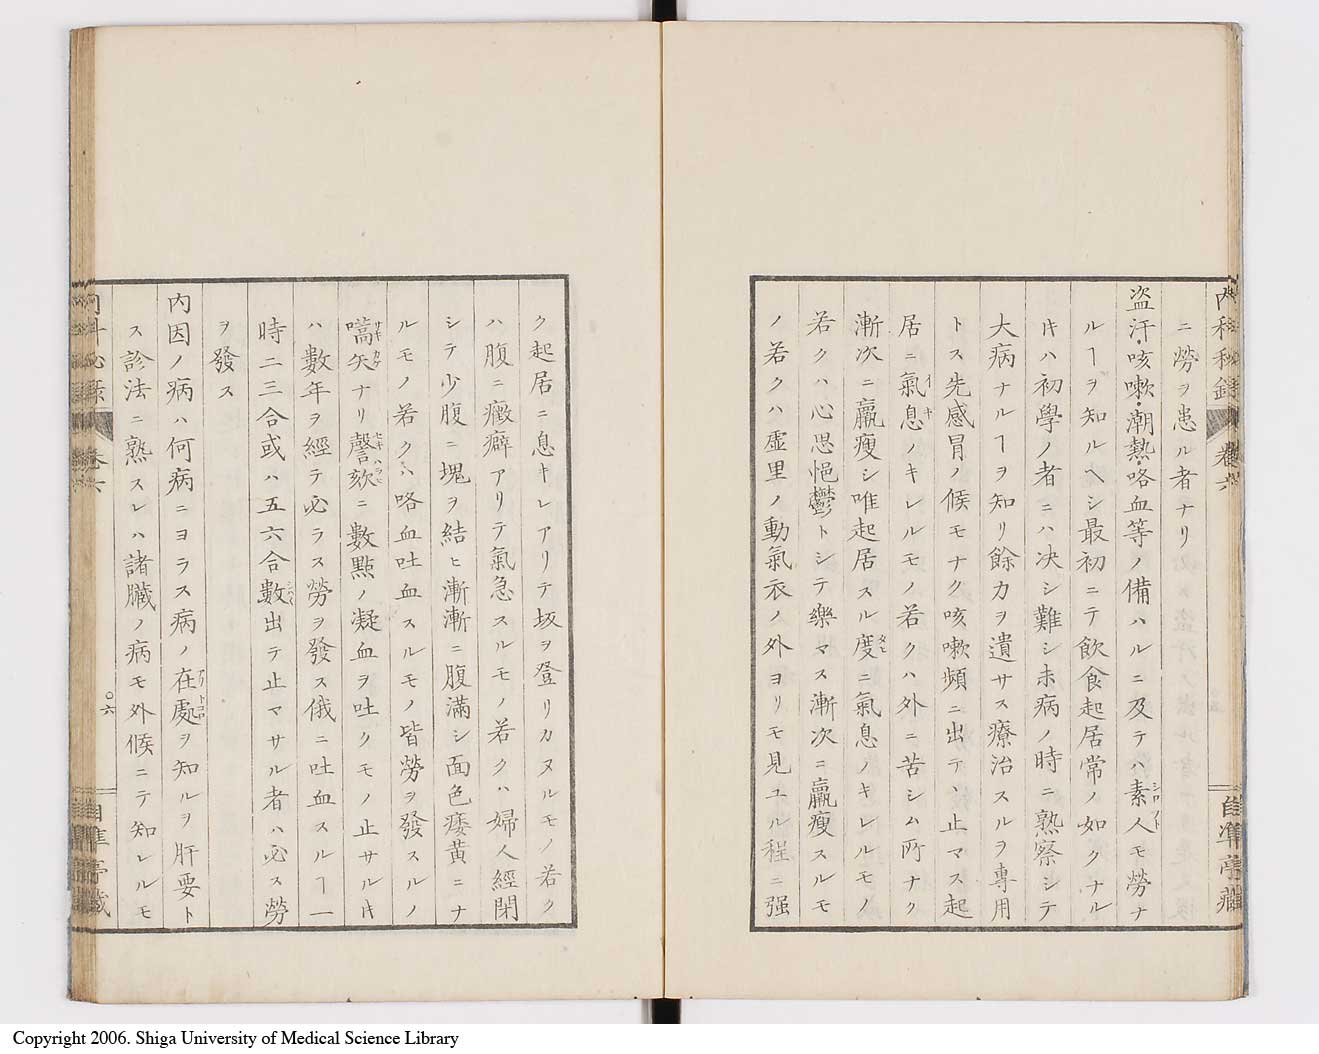 ニ勞ヲ患ル者ナリ
盗汗・咳嗽・潮熱・咯血等ノ備ハルニ及テハ素人モ勞ナ
ルヿヲ知ルヘシ最初ニテ飲食起居常ノ如クナル
𪜈ハ初學ノ者ニハ决シ難シ未病ノ時ニ熟察シテ
大病ナルヿヲ知リ餘力ヲ遺サス療治スルヲ専用
トス先感冒ノ候モナク咳嗽頻ニ出テ、止マス起
居ニ氣息ノキレルモノ若クハ外ニ苦シム所ナク
漸次ニ羸瘦シ唯起居スル度ニ氣息ノキレルモノ
若クハ心思悒鬱トシテ樂マス漸次ニ羸瘦スルモ
ノ若クハ虚里ノ動氣衣ノ外ヨリモ見ユル程ニ强
内科秘録 卷六
自準亭藏
ク起居ニ息キレアリテ坂ヲ登リカヌルモノ若ク
ハ腹ニ癥癖アリテ氣急スルモノ若クハ婦人經閉
シテ少腹ニ塊ヲ結ヒ漸漸ニ腹滿シ面色痿黄ニナ
ルモノ若クハ咯血吐血スルモノ皆勞ヲ發スルノ
嚆矢ナリ謦欬ニ數點ノ凝血ヲ吐クモノ止サル𪜈
ハ數年ヲ經テ必ラス勞ヲ發ス俄ニ吐血スルヿ一
時ニ二三合或ハ五六合數出テ止マサル者ハ必ス勞
ヲ發ス
内因ノ病ハ何病ニヨラス病ノ在處ヲ知ルヲ肝要ト
ス診法ニ熟スレハ諸臓ノ病モ外候ニテ知レルモ
内科秘録 卷六
〇六
自準亭藏
Copyright 2006. Shiga University of Medical Science Library